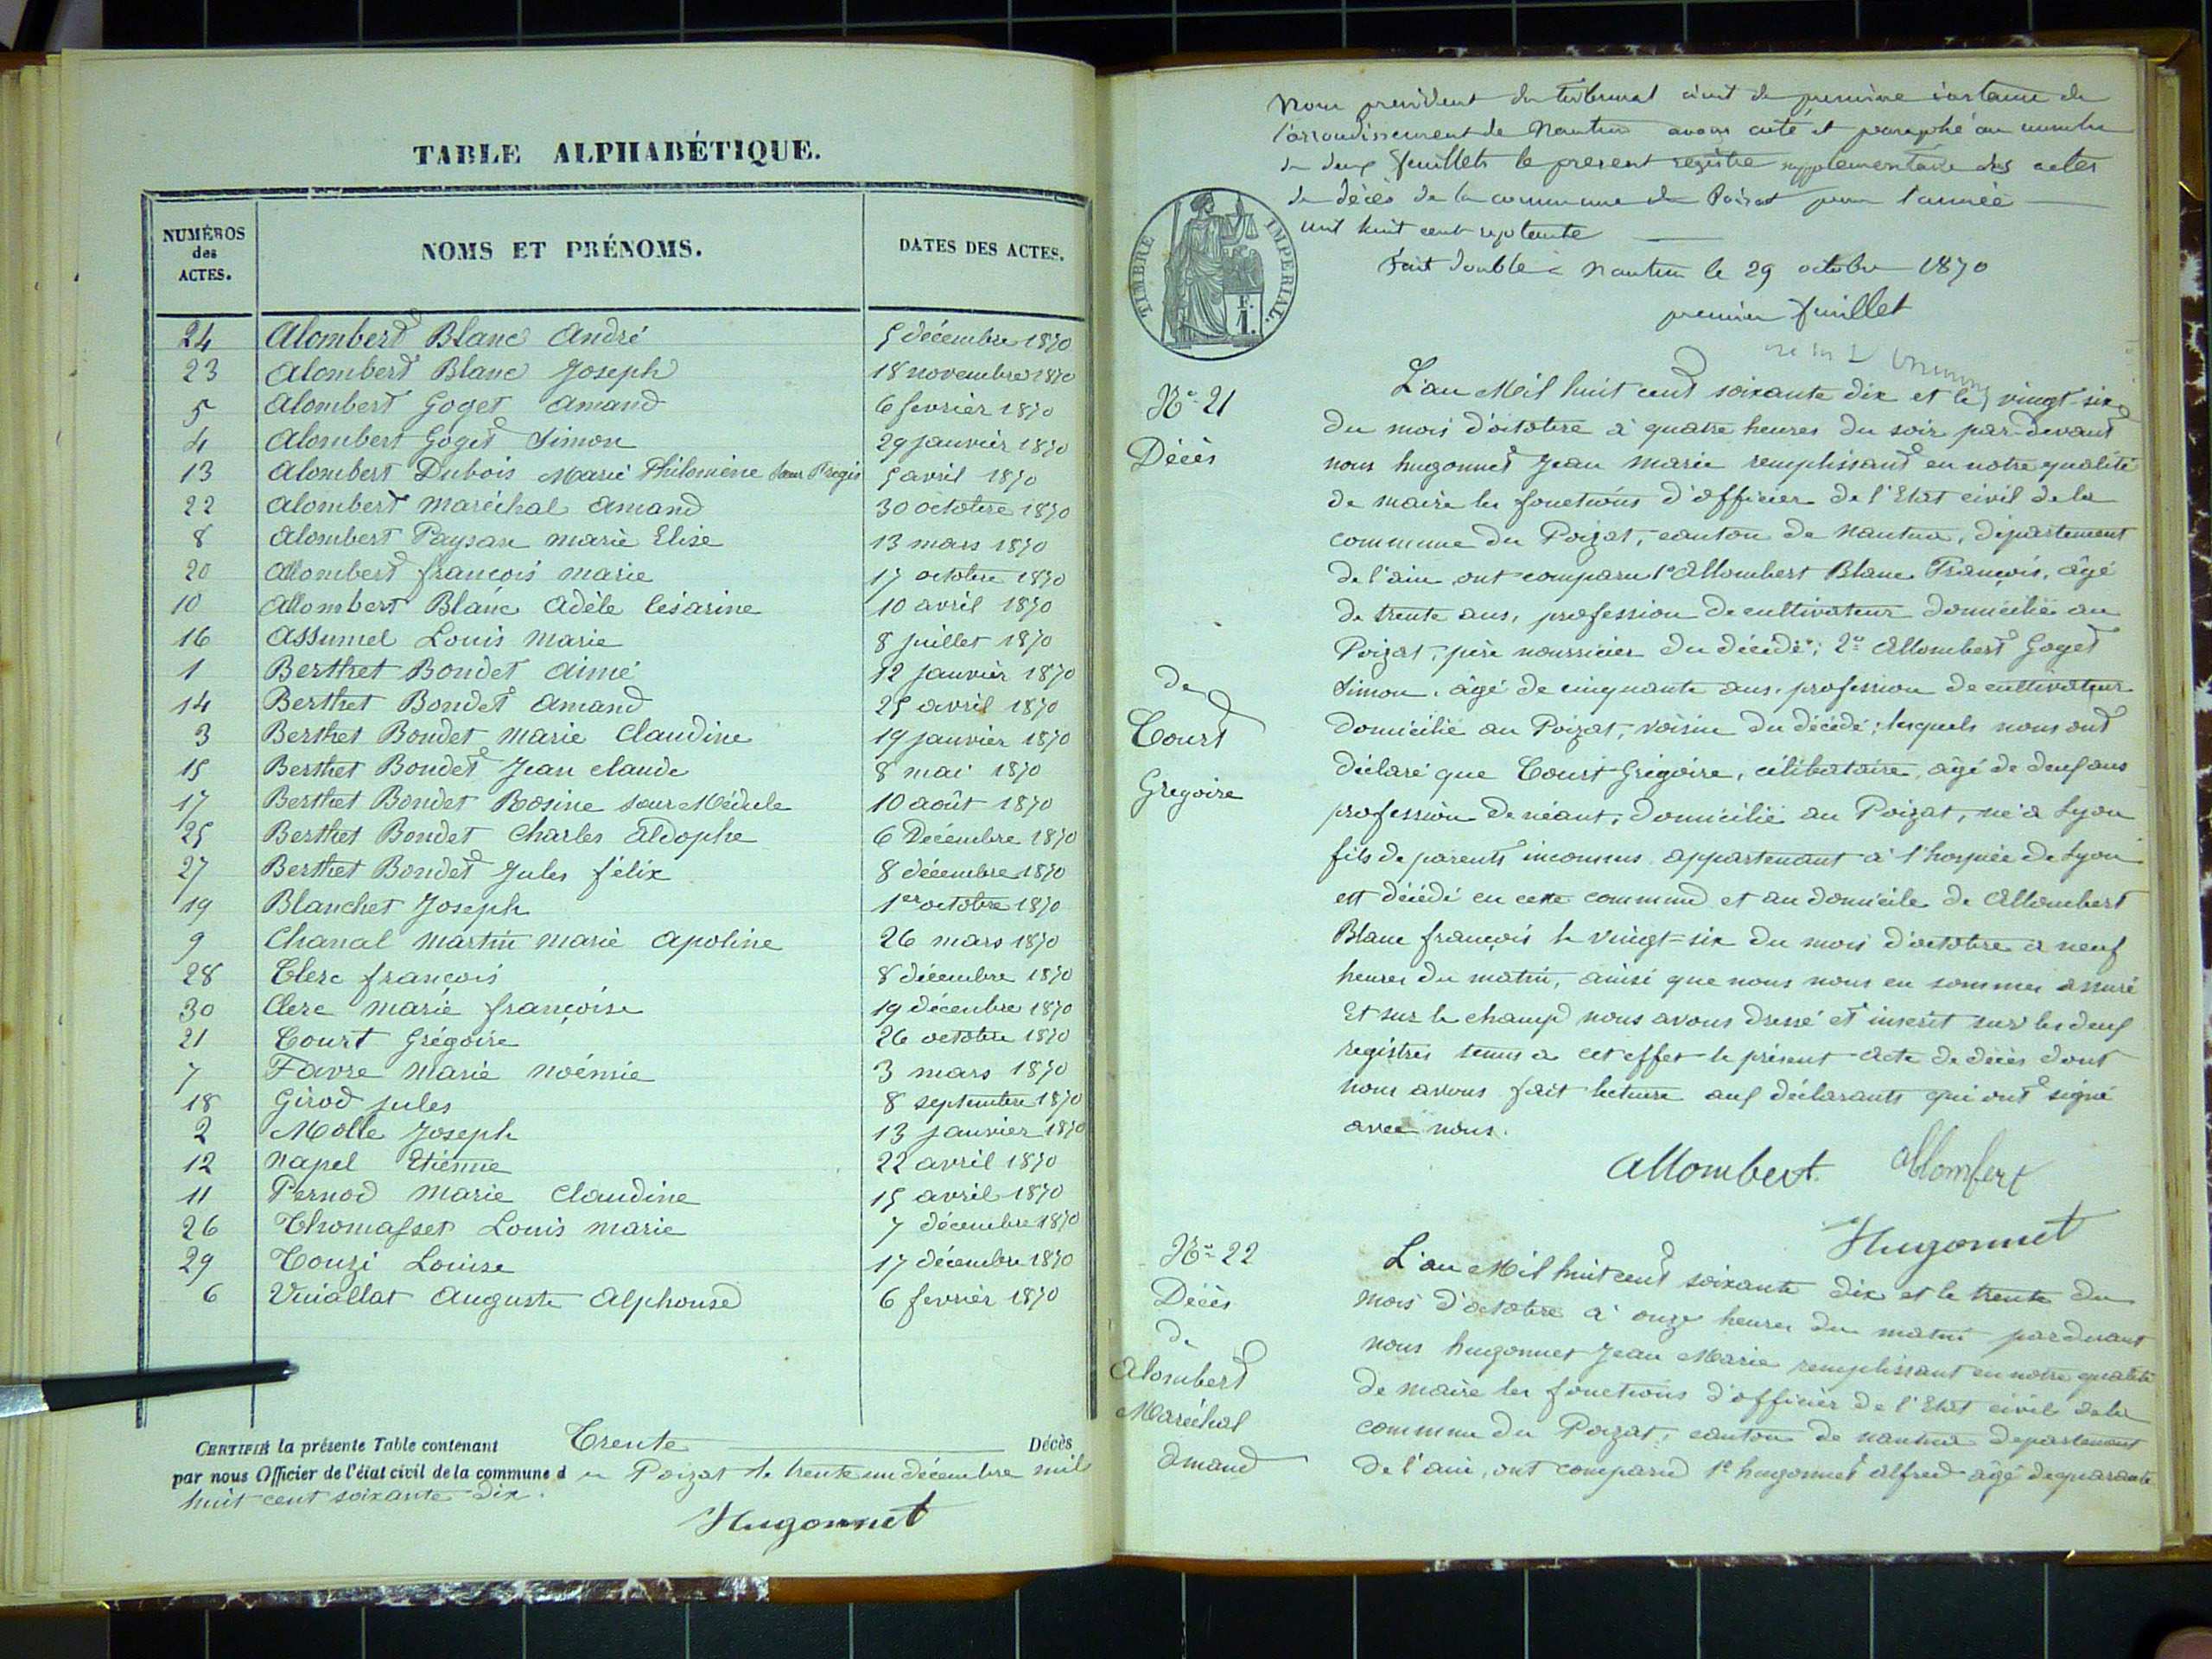 TABLE ALPHABÉTIQUE.
NUMÉROS des ACTES. NOMS ET PRÉNOMS. DATES DES ACTES.
24 Alombert Blanc André 5 décembre 1870
23 Alombert Blanc Joseph 18 novembre 1870
5 Alombert Goget Amand 6 fevrier 1870
4 Alombert Goget Simon 29 janvier 1870
13 Alombert Dubois Marie Philomène Sœur Regis 5 avril 1870
22 Alombert Maréchal Amand 30 octobre 1870
8 Alombert Paysan Marie Elise 13 mars 1870
20 Allombert françois marie 17 octobre 1870
10 Allombert Blanc Adèle Césarine 10 avril 1870
16 Assumel Louis Marie 8 juillet 1870
1 Berthet Bondet Aimé 12 janvier 1870
14 Berthet Bondet Amand 25 avril 1870
3 Berthet Bondet Marie Claudine 19 janvier 1870
15 Berthet Bondet Jean claude 8 mai 1870
17 Berthet Bondet Rosine sœur Médule 10 août 1870
25 Berthet Bondet Charles Aldophe 6 Décembre 1870
27 Berthet Bondet Jules félix 8 décembre 1870
19 Blanchet Joseph 1er octobre 1870
9 Chanal Martin Marie Apoline 26 mars 1870
28 Clerc françois 8 décembre 1870
30 Clerc Marie françoise 19 décembre 1870
21 Court Grégoire 26 octobre 1870
7 Favre Marie Noémie 3 mars 1870
18 Girod Jules 8 septembre 1870
2 Molle Joseph 13 janvier 1870
12 Napel Etienne 22 avril 1870
11 Pernod Marie Claudine 15 avril 1870
26 Thomasset Louis Marie 7 décembre 1870
29 Touzi Louise 17 décembre 1870
6 Vuiallat Auguste Alphonse 6 fevrier 1870
CERTIFIÉ la présente Table contenant Trente Décès
par nous Officier de l'état civil de la commune du Poizat le trente un décembre mil
huit cent soixante dix.
Hugonnet
Nous président du tribunal civil de première instance de
l'arrondissement de Nantua avons coté et paraphé au nombre
de deux feuillets le present registre supplementaire des actes
de décès de la commune du Poizat pour l'année
mil huit cent septante
Fait double à Nantua le 29 octobre 1870
premier feuillet
TIMBRE IMPÉRIAL.
1 F.
No 21
Décès
de
Court
Gregoire
L'an Mil huit cent soixante dix et le vingt-six
du mois d'octobre à quatre heures du soir par-devant
nous hugonnet Jean Marie remplissant en notre qualité
de maire les fonctions d'officier de l'Etat civil de la
commune du Poizat, canton de Nantua, département
de l'ain ont comparu 1° Allombert Blanc François, âgé
de trente ans, profession de cultivateur domicilié au
Poizat, père nourricier du décédé; 2° Allombert Goget
Simon, âgé de cinquante ans, profession de cultivateur
domicilié au Poizat, voisin du décédé; lesquels nous ont
déclaré que Court Grégoire, célibataire, âgé de deux ans
profession de néant, domicilié au Poizat, né à Lyon
fils de parents inconnus appartenant à l'hospice de Lyon
est décédé en cette commune et au domicile de Allombert
Blanc françois le vingt-six du mois d'octobre à neuf
heures du matin, ainsi que nous nous en sommes assuré
Et sur le champ nous avons dressé et inscrit sur les deux
registres tenus à cet effet le présent acte de décès dont
nous avons fait lecture aux déclarants qui ont signé
avec nous.
Allombert. Allombert
Hugonnet
No 22
Décès
de
Alombert
Maréchal
Amand
L'an Mil huit cent soixante dix et le trente du
mois d'octobre à onze heures du matin pardevant
nous hugonnet Jean Marie remplissant en notre qualité
de maire les fonctions d'officier de l'Etat civil de la
commune du Poizat, canton de Nantua département
de l'ain, ont comparu 1° hugonnet Alfred âgé de quarante